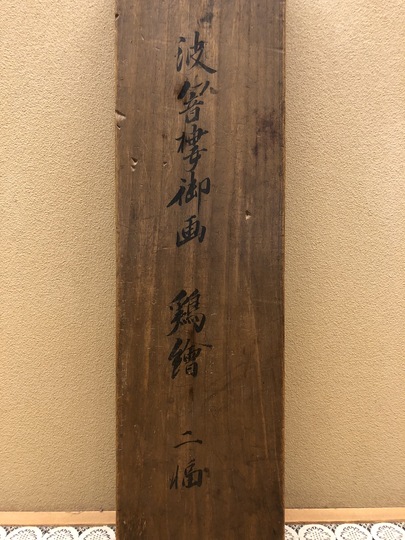 波響樓御画 鶏繪 二幅